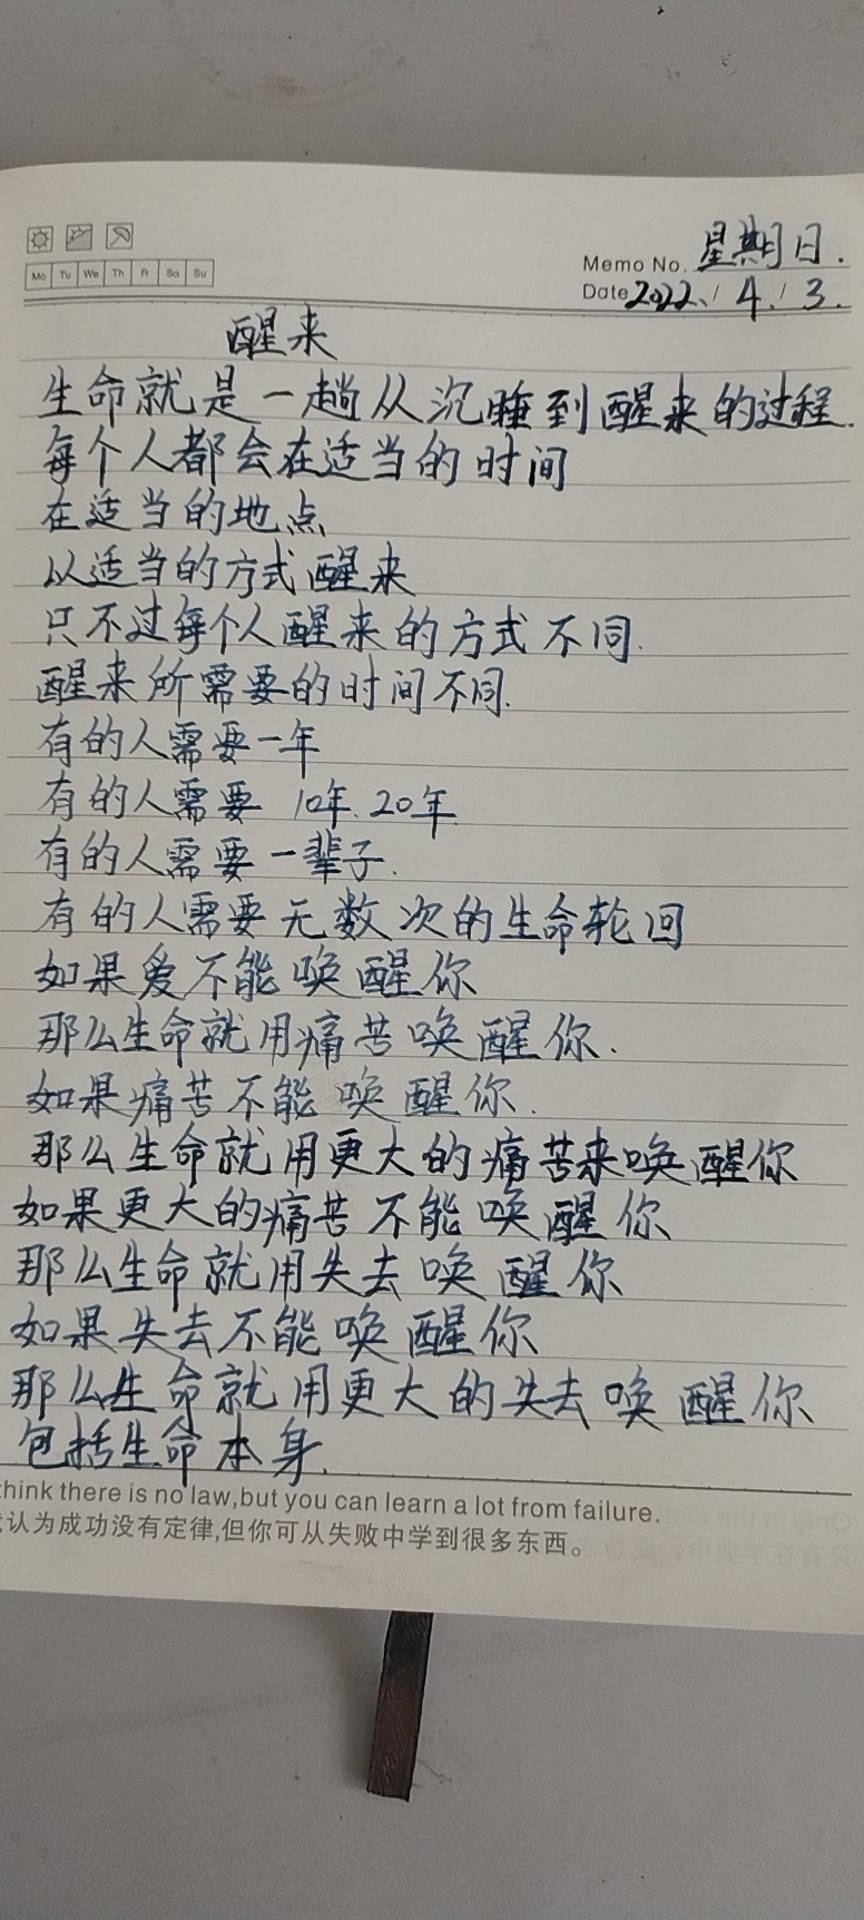 Memo No. 星期日.
Mo Tu We Th Fr Sa Su
Date 2022./ 4./ 3.
醒来
生命就是一趟从沉睡到醒来的过程.
每个人都会在适当的时间
在适当的地点
以适当的方式醒来
只不过每个人醒来的方式不同.
醒来所需要的时间不同.
有的人需要一年
有的人需要 10年.20年.
有的人需要一辈子.
有的人需要无数次的生命轮回
如果爱不能唤醒你
那么生命就用痛苦唤醒你.
如果痛苦不能唤醒你.
那么生命就用更大的痛苦来唤醒你
如果更大的痛苦不能唤醒你
那么生命就用失去唤醒你
如果失去不能唤醒你
那么生命就用更大的失去唤醒你
包括生命本身.
think there is no law,but you can learn a lot from failure.
认为成功没有定律,但你可从失败中学到很多东西。